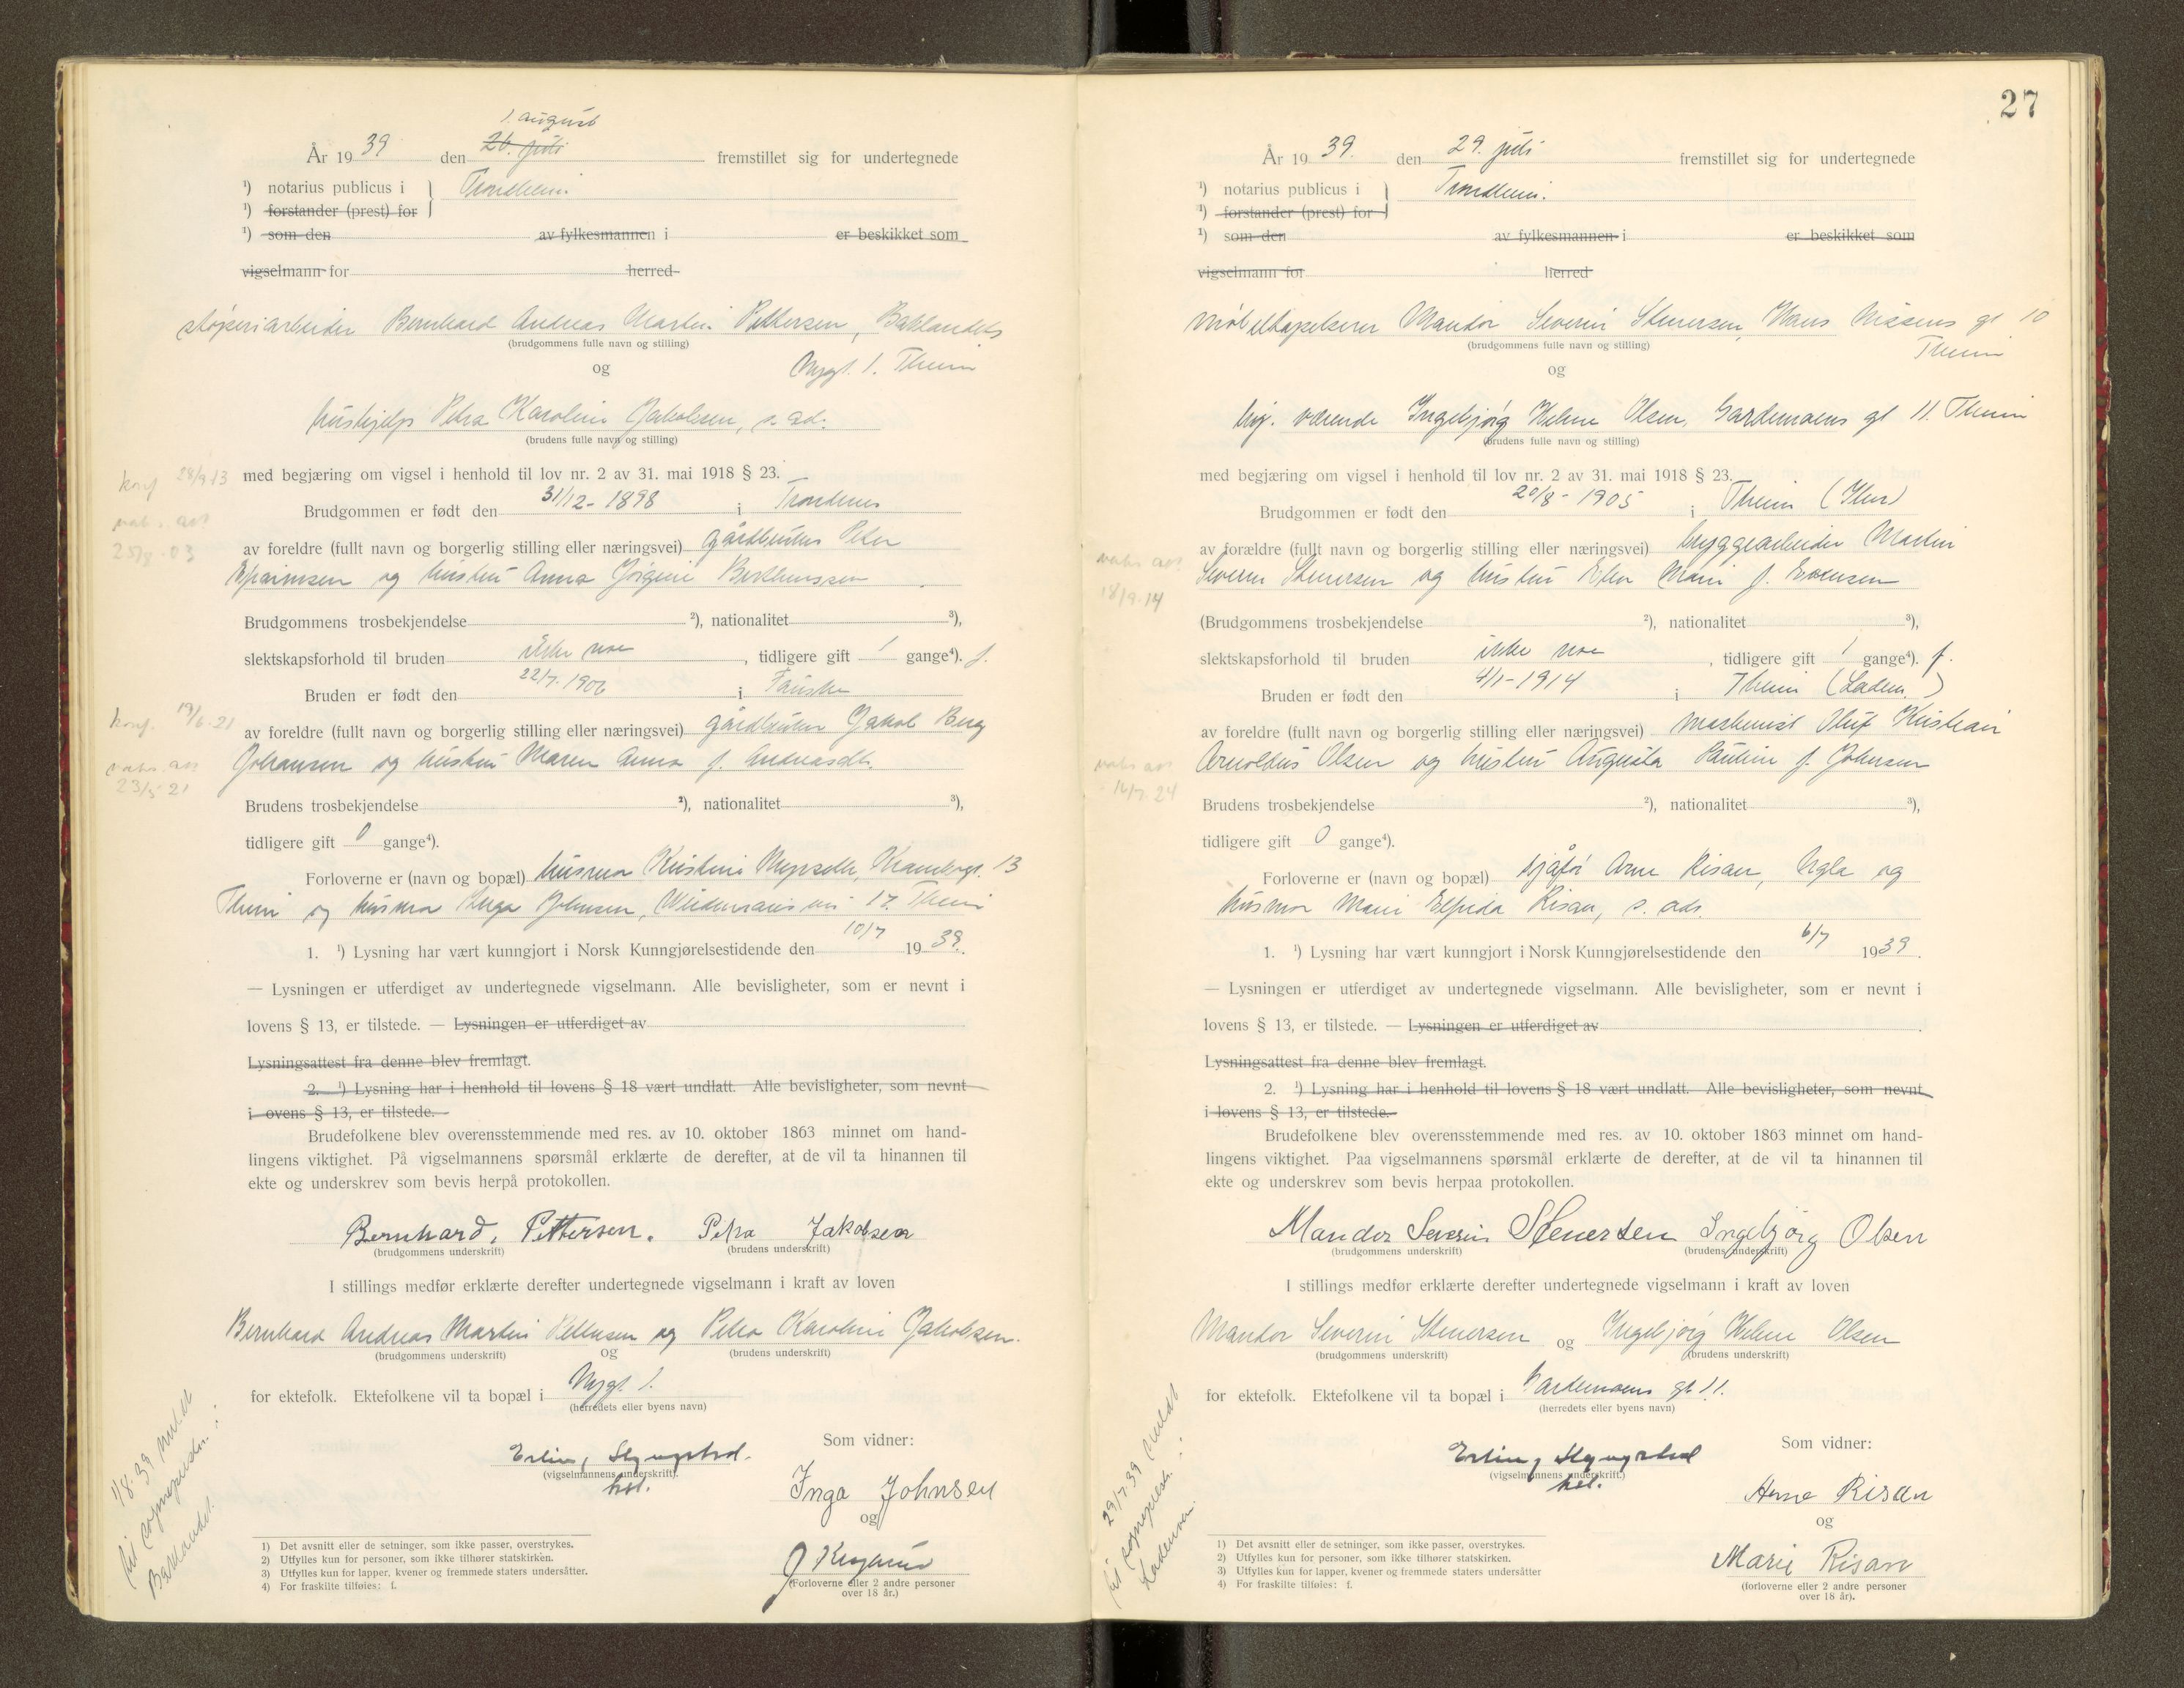 1. august
År 1939 den 26. juli fremstillet sig for undertegnede
¹) notarius publicus i } Trondheim.
¹) forstander (prest) for
¹) som den av fylkesmannen i er beskikket som
vigselmann for herred
støperiarbeider Bernhard Andreas Martin Pettersen, Baklandets
(brudgommens fulle navn og stilling)
og Nygt. 1. Theim
hushjelp Petra Karoline Jakobsen, s. ad.
(brudens fulle navn og stilling)
konf 28/9 13 med begjæring om vigsel i henhold til lov nr. 2 av 31. mai 1918 § 23.
Brudgommen er født den 31/12-1898 i Trondenes
vaks. att
25/8-03
av foreldre (fullt navn og borgerlig stilling eller næringsvei) gårdbruker Peter
og hustru Anna Jørgine
Brudgommens trosbekjendelse ²), nationalitet ³),
slektskapsforhold til bruden ikke noe, tidligere gift 1 gange⁴). f.
Bruden er født den 22/7. 1906 i Fauske
konf. 19/6-21
av foreldre (fullt navn og borgerlig stilling eller næringsvei) gårdbruker Jakob Berg
Johansen og hustru Maren Anna f. Andreasdtr.
vaks. att
23/5 21
Brudens trosbekjendelse ²), nationalitet ³),
tidligere gift 0 gange⁴).
Forloverne er (navn og bopæl) husmor Kristine 13
Theim og husmor Inga Johnsen, 17. Theim
1. ¹) Lysning har vært kunngjort i Norsk Kunngjørelsestidende den 10/7 1939.
— Lysningen er utferdiget av undertegnede vigselmann. Alle bevisligheter, som er nevnt i
lovens § 13, er tilstede. — Lysningen er utferdiget av
Lysningsattest fra denne blev fremlagt.
2. ¹) Lysning har i henhold til lovens § 18 vært undlatt. Alle bevisligheter, som nevnt
i ovens § 13, er tilstede.
Brudefolkene blev overensstemmende med res. av 10. oktober 1863 minnet om hand-
lingens viktighet. På vigselmannens spørsmål erklærte de derefter, at de vil ta hinannen til
ekte og underskrev som bevis herpå protokollen.
Bernhard. Pettersen. Petra Jakobsen
(brudgommens underskrift) (brudens underskrift)
I stillings medfør erklærte derefter undertegnede vigselmann i kraft av loven
Bernhard Andreas Martin Pettersen og Petra Karoline Jakobsen.
(brudgommens underskrift) og (brudens underskrift)
for ektefolk. Ektefolkene vil ta bopæl i Nygt 1.
(herredets eller byens navn)
Som vidner:
Erling
(vigselmannens underskrift).
Inga Johnsen
og
(Forloverne eller 2 andre personer
over 18 år.)
1/8-39 meldt
til sogneprest
Baklandet.
1) Det avsnitt eller de setninger, som ikke passer, overstrykes.
2) Utfylles kun for personer, som ikke tilhører statskirken.
3) Utfylles kun for lapper, kvener og fremmede staters undersåtter.
4) For fraskilte tilføies: f.
27
År 1939. den 29. juli fremstillet sig for undertegnede
¹) notarius publicus i } Trondheim.
¹) forstander (prest) for
¹) som den av fylkesmannen i er beskikket som
vigselmann for herred
møbeltapetserer Mandor Severin Stenersen, Hans Nissens gt 10
(brudgommens fulle navn og stilling) Theim
og
hj. værende Ingebjørg Helene Olsen, Gardemoens gt 11. Theim
(brudens fulle navn og stilling)
med begjæring om vigsel i henhold til lov nr. 2 av 31. mai 1918 § 23.
Brudgommen er født den 20/8-1905 i Theim (Ilen)
vaks att
18/9-14
av forældre (fullt navn og borgerlig stilling eller næringsvei) bryggearbeider Martin
Severin Stenersen og hustru Ellen Marie f. Evensen
(Brudgommens trosbekjendelse ²), nationalitet ³),
slektskapsforhold til bruden ikke noe, tidligere gift 1 gange⁴). f.
Bruden er født den 4/1-1914 i Theim (Ladem.)
av foreldre (fullt navn og borgerlig stilling eller næringsvei) maskinist Oluf Kristian
Arnoldus Olsen og hustru Augusta Pauline f. Johnsen
vaks att
14/7-24
Brudens trosbekjendelse ²), nationalitet ³),
tidligere gift 0 gange⁴).
Forloverne er (navn og bopæl) sjåfør Arne Risan, Ugla og
husmor Marie Elfrida Risan, s. ads.
1. ¹) Lysning har vært kunngjort i Norsk Kunngjørelsestidende den 6/7 1939.
— Lysningen er utferdiget av undertegnede vigselmann. Alle bevisligheter, som er nevnt i
lovens § 13, er tilstede. — Lysningen er utferdiget av
Lysningsattest fra denne blev fremlagt.
2. ¹) Lysning har i henhold til lovens § 18 vært undlatt. Alle bevisligheter, som nevnt
i lovens § 13, er tilstede.
Brudefolkene blev overensstemmende med res. av 10. oktober 1863 minnet om hand-
lingens viktighet. Paa vigselmannens spørsmål erklærte de derefter, at de vil ta hinannen til
ekte og underskrev som bevis herpaa protokollen.
Mandor Severin Stenersen Ingebjørg Olsen
(brudgommens underskrift) (brudens underskrift)
I stillings medfør erklærte derefter undertegnede vigselmann i kraft av loven
Mandor Severin Stenersen og Ingebjørg Helene Olsen
(brudgommens underskrift) (brudens underskrift)
for ektefolk. Ektefolkene vil ta bopæl i Gardemoens gt 11.
(herredets eller byens navn)
Som vidner:
Erling
(vigselmannens underskrift.)
Arne Risan
og
Marie Risan
(forloverne eller 2 andre personer
over 18 år).
29/7-39 meldt
til sogneprest.
Lademoen.
1) Det avsnitt eller de setninger, som ikke passer, overstrykes.
2) Utfylles kun for personer, som ikke tilhører statskirken.
3) Utfylles kun for lapper, kvener og fremmede staters undersåtter
4) For fraskilte tilføies: f.